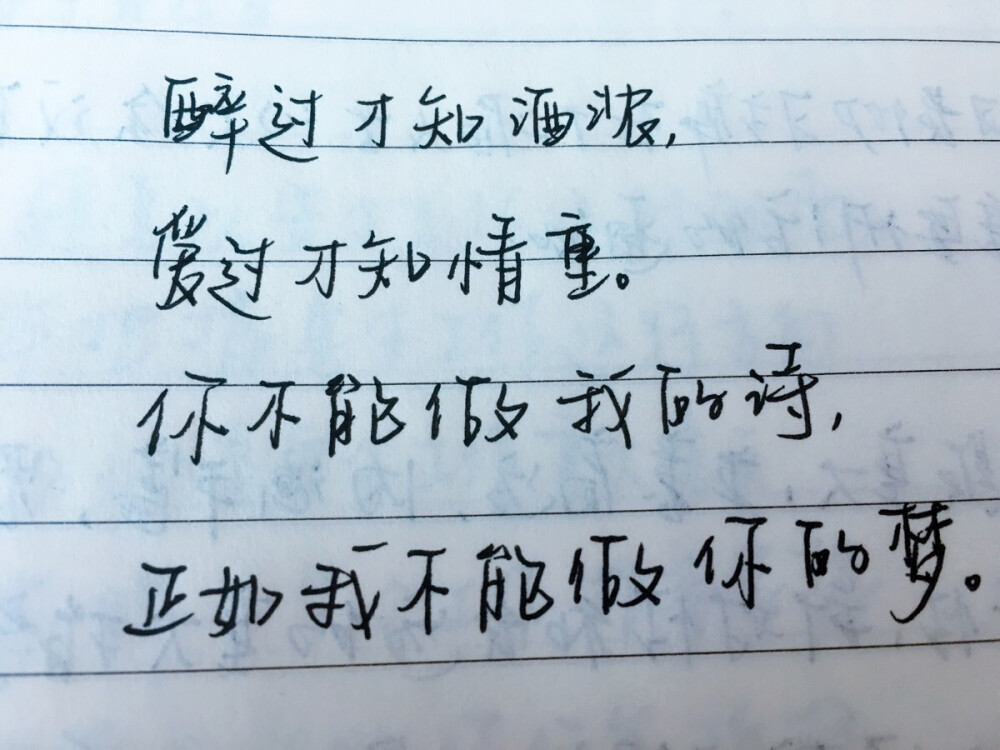 醉过才知酒浓，
爱过才知情重。
你不能做我的诗，
正如我不能做你的梦。